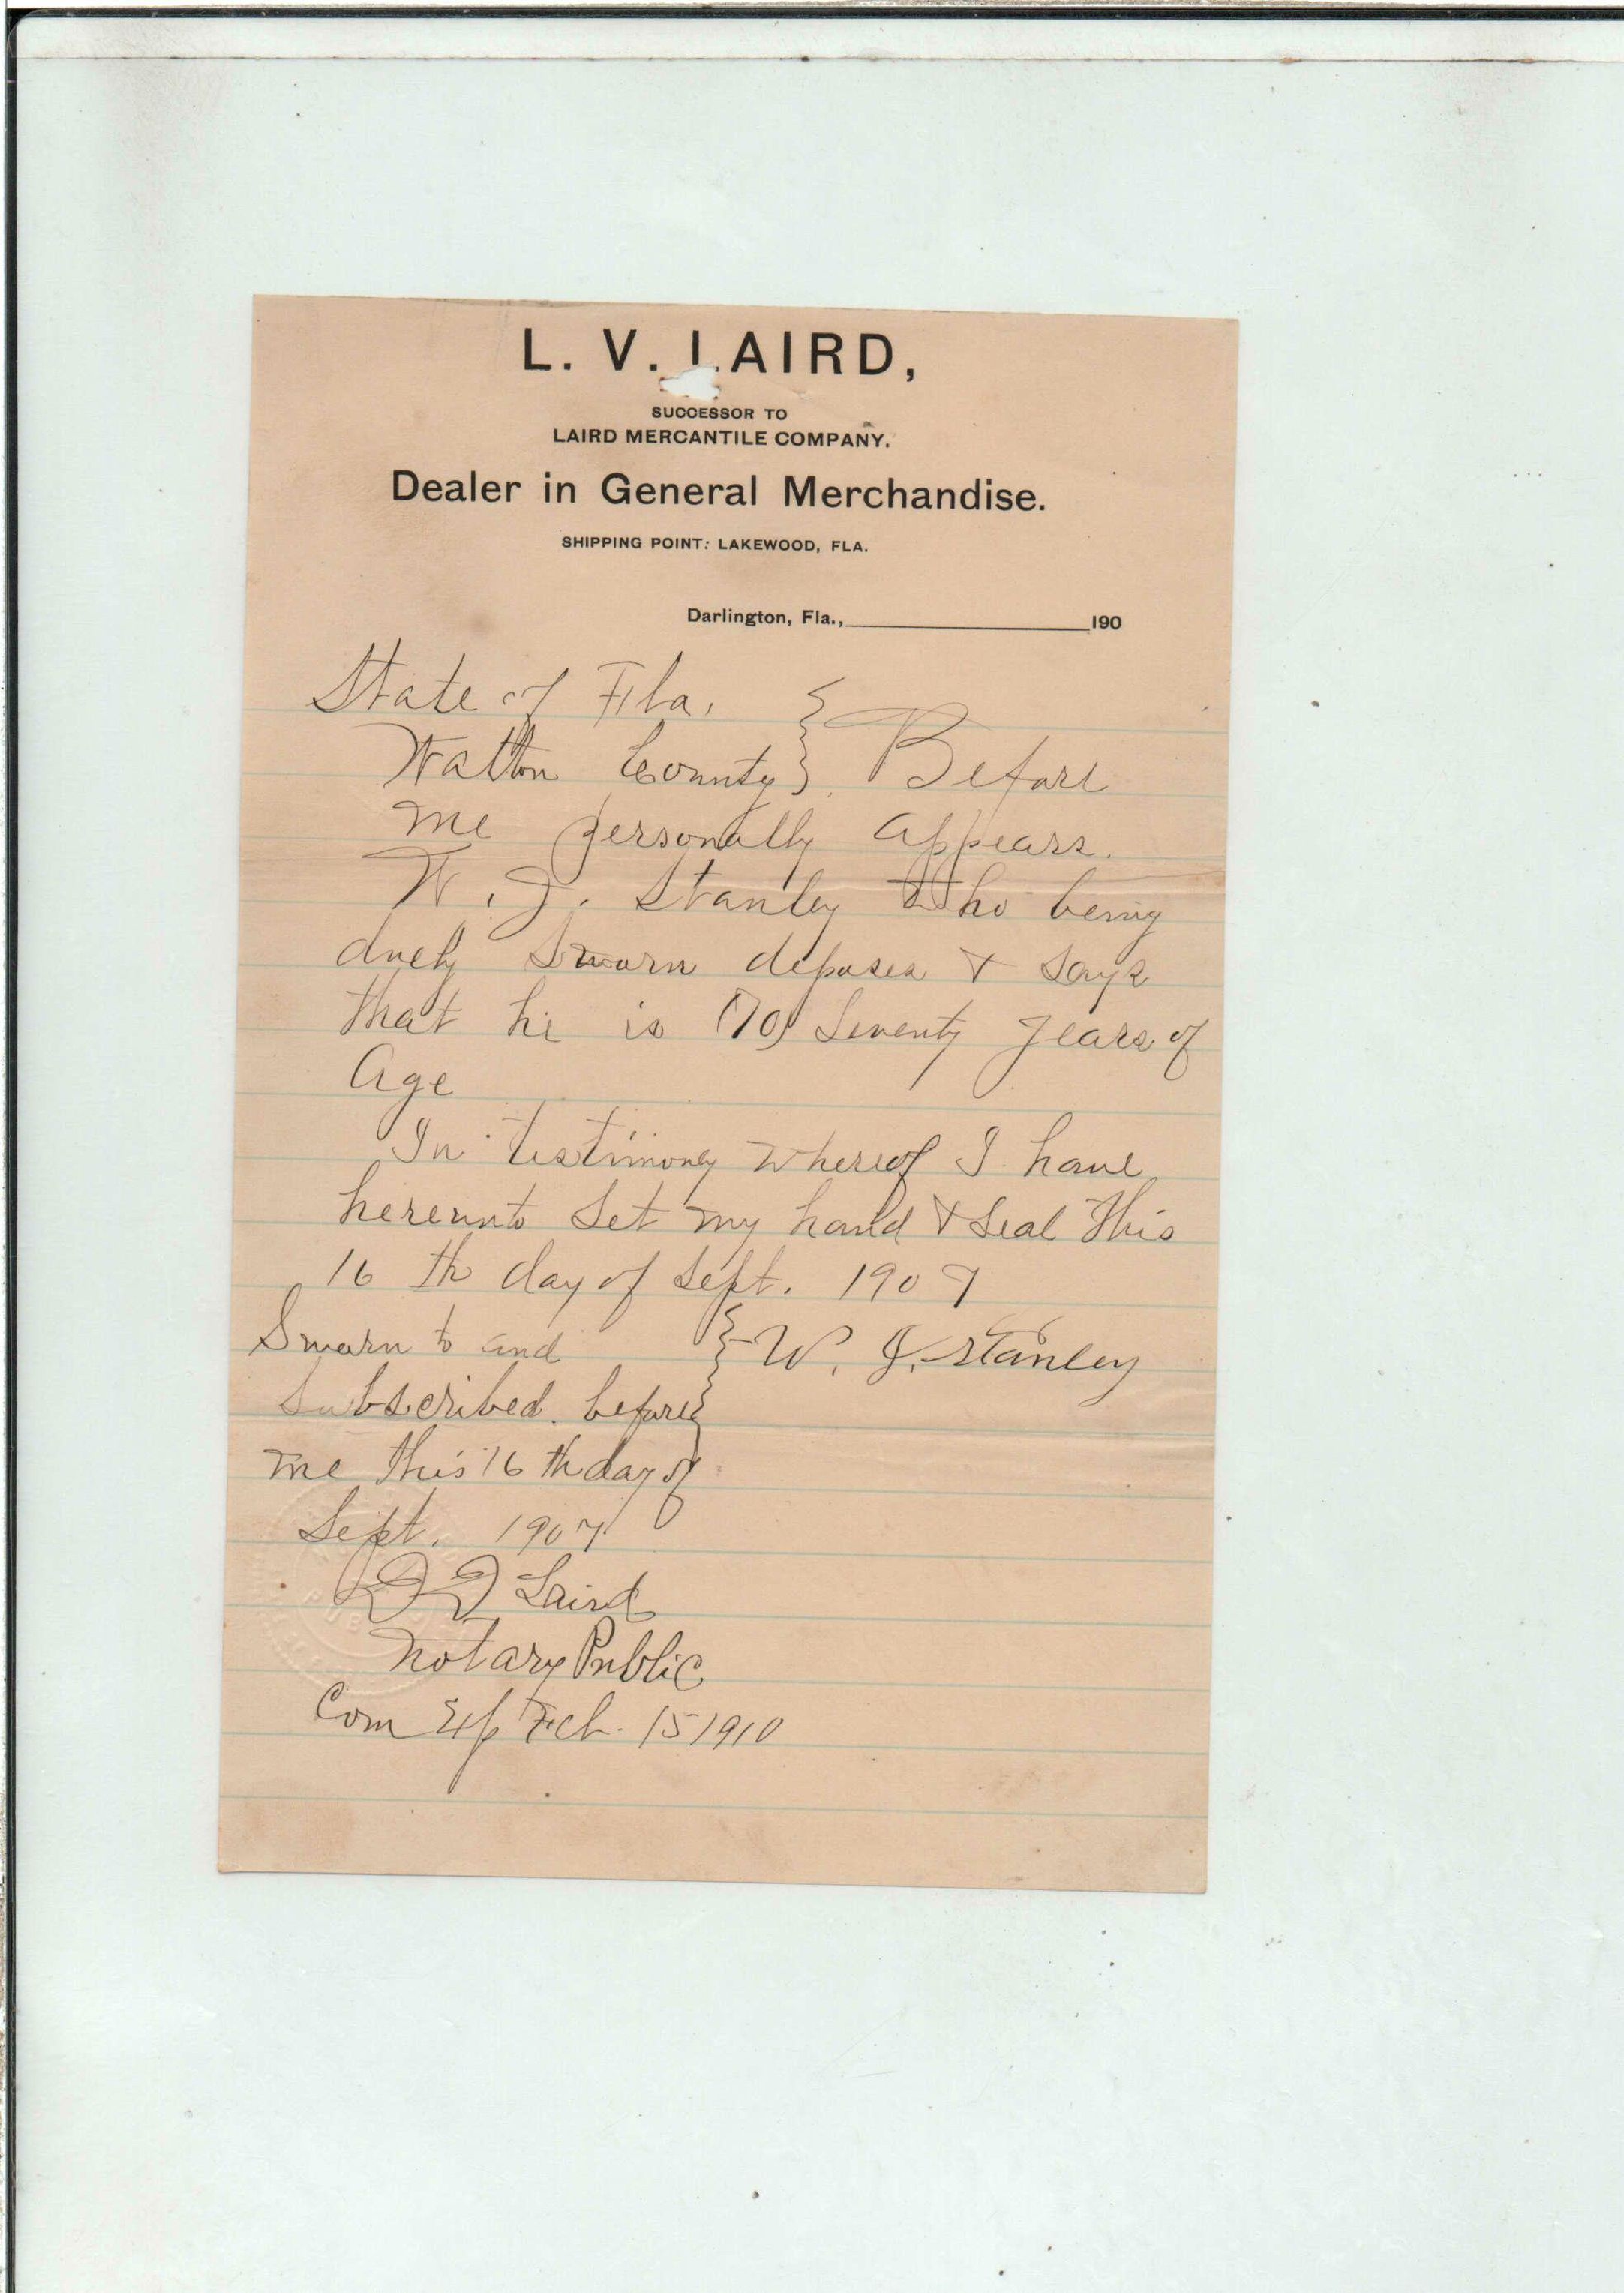 L. V. LAIRD,
SUCCESSOR TO
LAIRD MERCANTILE COMPANY.
Dealer in General Merchandise.
SHIPPING POINT: LAKEWOOD, FLA.
Darlington, Fla., 190
State of Fla.
Walton County } Before
me personally appears.
W. J. Stanley who being
duely Sworn deposes & says
that he is (70) Seventy years of
Age
In testimony whereof I have
hereunto Set my hand & Seal this
16 th day of Sept. 1907
Sworn to and } W. J. Stanley
Subscribed before
me this 16 th day of
Sept. 1907
Laird
Notary Public
Com Exp Feb. 15 1910
PUB